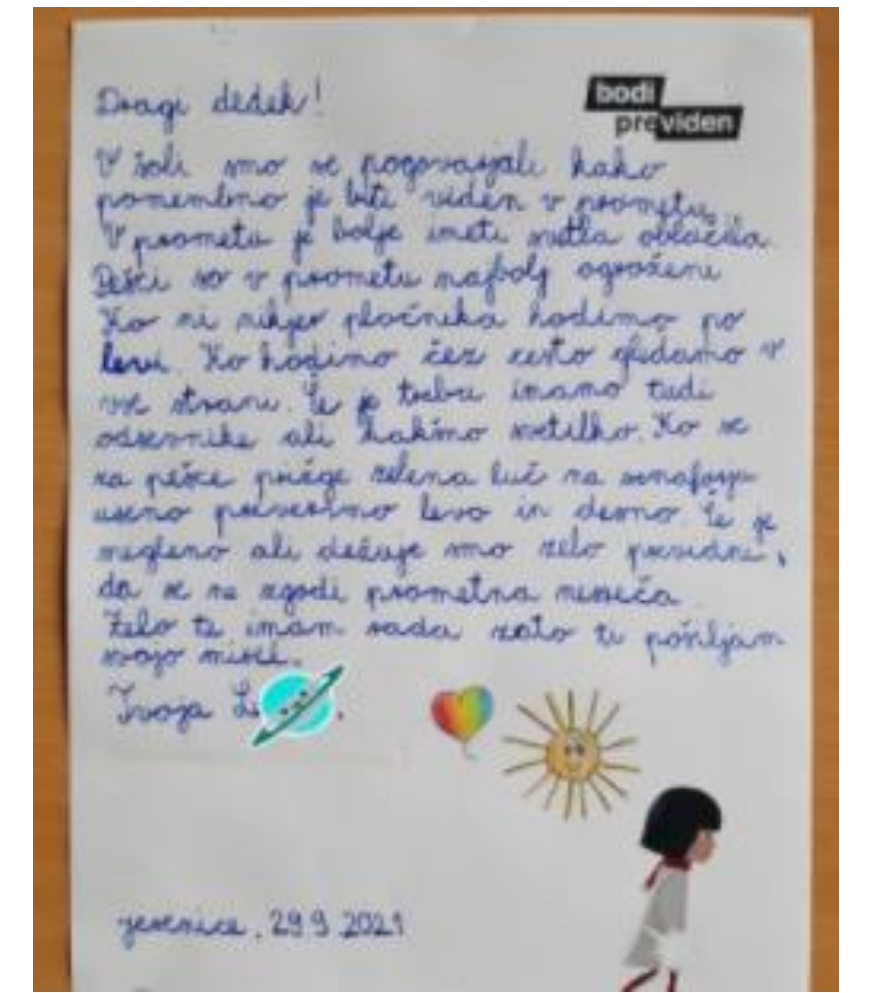 Dragi dedek!
bodi
previden
V šoli smo se pogovarjali kako
pomembno je biti viden v prometu.
V prometu je bolje imeti svetla oblačila.
Pešci so v prometu najbolj ogroženi
Ko ni nikjer pločnika hodimo po
levi. Ko hodimo čez cesto gledamo v
vse strani. Če je treba imamo tudi
odsevnike ali kakšno svetilko. Ko se
za pešce prižge zelena luč na semaforju
useno preverimo levo in desno. Če je
megleno ali dežuje smo zelo previdni,
da se ne zgodi prometna nesreča.
Zelo te imam rada zato ti pošiljam
svojo misel.
Tvoja
jesenice, 29.9.2021